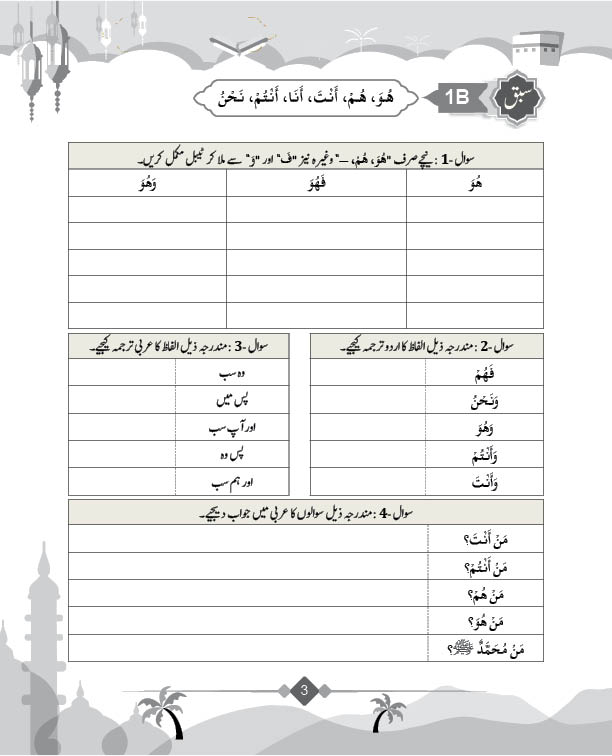 سبق 1B هُوَ، هُمْ، أَنْتَ، أَنَا، أَنْتُمْ، نَحْنُ
سوال-1: نیچے صرف "هُوَ، هُمْ، —" وغیرہ نیز "فَ" اور "وَ" سے ملا کر ٹیبل مکمل کریں۔
هُوَ فَهُوَ وَهُوَ
سوال-2: مندرجہ ذیل الفاظ کا اردو ترجمہ کیجیے۔
فَهُمْ
وَنَحْنُ
وَهُوَ
وَأَنْتُمْ
وَأَنْتَ
سوال-3: مندرجہ ذیل الفاظ کا عربی ترجمہ کیجیے۔
وہ سب
پس میں
اور آپ سب
پس وہ
اور ہم سب
سوال-4: مندرجہ ذیل سوالوں کا عربی میں جواب دیجیے۔
مَنْ أَنْتَ؟
مَنْ أَنْتُمْ؟
مَنْ هُمْ؟
مَنْ هُوَ؟
مَنْ مُحَمَّدٌ ﷺ؟
3